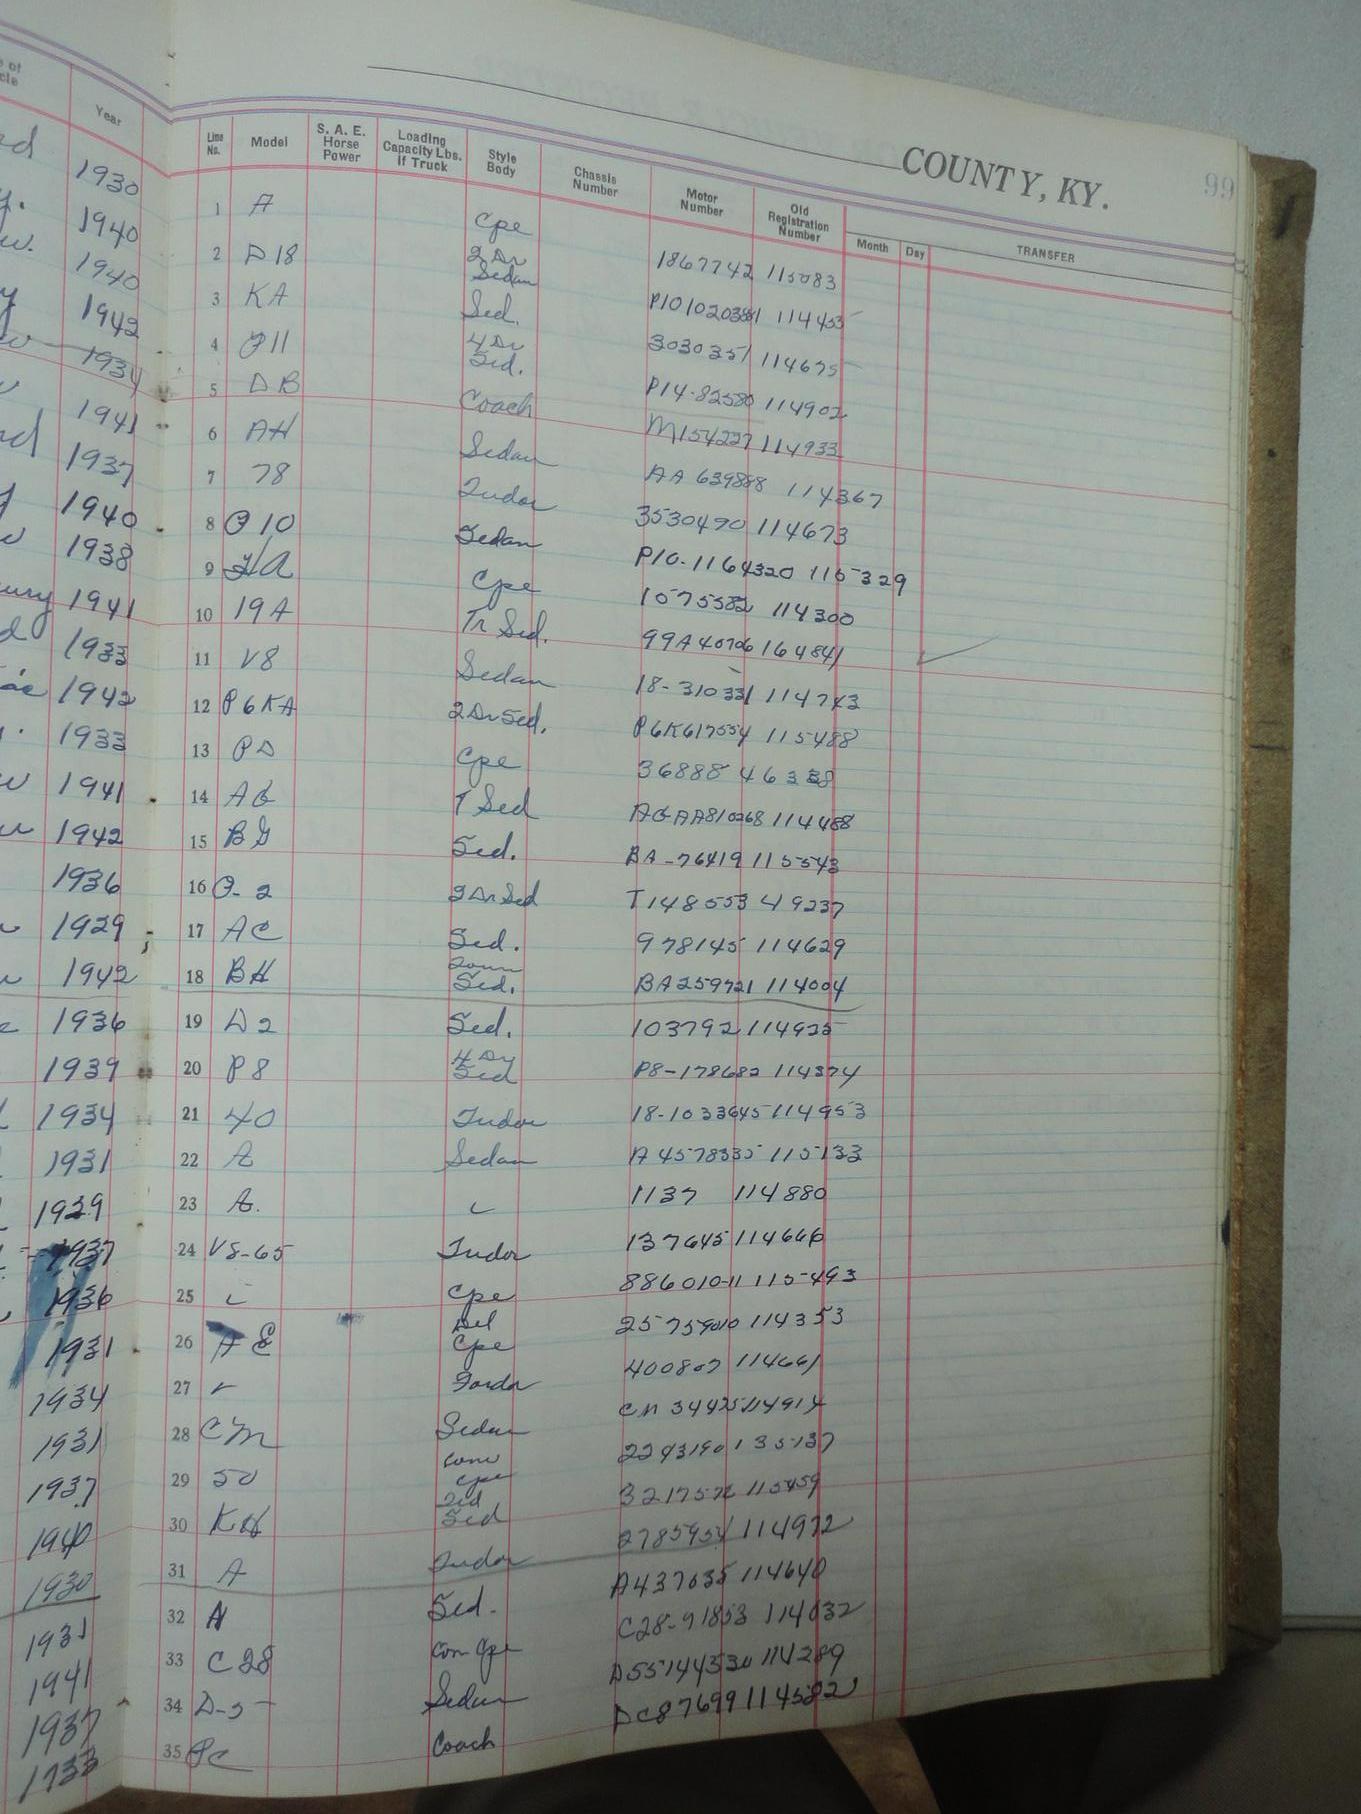 COUNTY, KY.
99
Year
Line No.
Model
S. A. E. Horse Power
Loading Capacity Lbs. if Truck
Style Body
Chassis Number
Motor Number
Old Registration Number
Month
Day
TRANSFER
1930 1 A Cpe 1867742 115083
1940 2 D18 2 Dr Sedan P10102038 114453
1940 3 KA Sed. 3030351 114675
1942 4 P11 4 Dr Sed. P14-82580 114902
1934 5 DB Coach M154227 114933
1941 6 AH Sedan AA 639888 114367
1937 7 78 Tudor 3530490 114673
1940 8 P10 Sedan P10-1164320 115329
1938 9 HA Cpe 1075582 114300
1941 10 19A Tr Sed. 99A40706 164841
1933 11 V8 Sedan 18-310331 114743
1942 12 P6KA 2 Dr Sed. P6K617554 115488
1933 13 PD Cpe 36888 46338
1941 14 AG T Sed AGAA810268 114488
1942 15 BG Sed. BA-76419 115543
1936 16 P-2 2 Dr Sed T148553 49237
1929 17 AC Sed. 978145 114629
1942 18 BH Town Sed. BA259721 114004
1936 19 D2 Sed. 103792 114925
1939 20 P8 4 Dr Sed P8-178682 114374
1934 21 40 Tudor 18-1033645 114953
1931 22 A Sedan A4578335 115133
1929 23 A. 1137 114880
1937 24 V8-65 Tudor 137645 114666
1936 25 Cpe 886010-11 115493
1931 26 AE Del Cpe 114353
1934 27 Fordor 400807 114661
1931 28 CM Sedan CM 34425 114914
1937 29 50 Conv Cpe 2293190 135137
1940 30 KH Sed 115459
1930 31 A Tudor 114972
1931 32 A Sed. A437635 114640
1941 33 C28 Con Cpe C28-91853 114032
1937 34 D-5 Sedan D55144530 114289
1933 35 PC Coach DC87699 114582